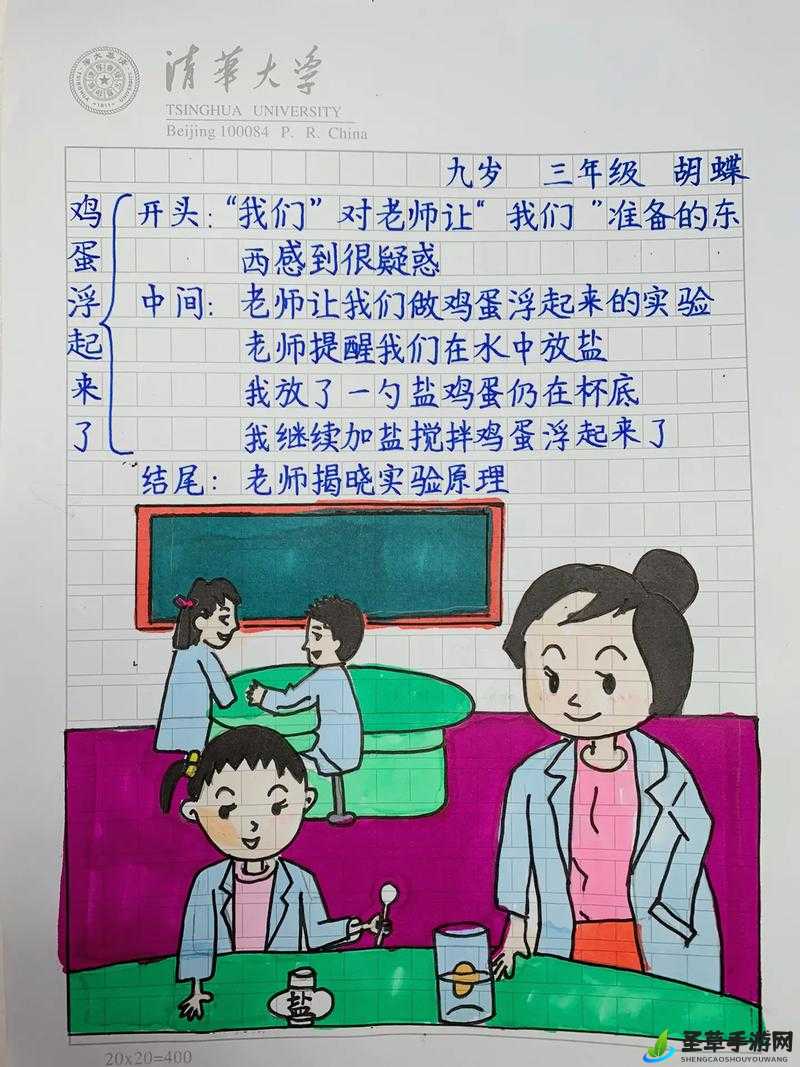 清華大学
TSINGHUA UNIVERSITY
Beijing 100084 P. R. China
九岁 三年级 胡蝶
鸡蛋浮起来了
开头：“我们”对老师让“我们”准备的东
西感到很疑惑
中间：老师让我们做鸡蛋浮起来的实验
老师提醒我们在水中放盐
我放了一勺盐鸡蛋仍在杯底
我继续加盐搅拌鸡蛋浮起来了
结尾：老师揭晓实验原理
盐
20x20=400
圣草手游网
SHENGCAOSHOUYOUWANG